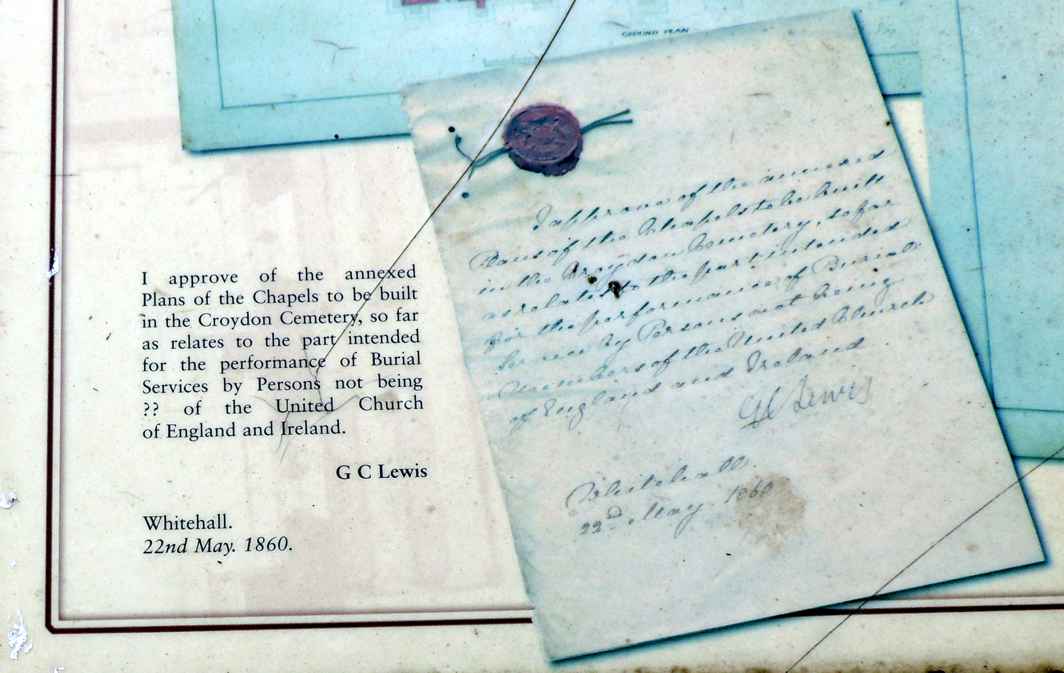 GROUND PLAN
I approve of the annexed
Plans of the Chapels to be built
in the Croydon Cemetery, so far
as relates to the part intended
for the performance of Burial
Services by Persons not being
?? of the United Church
of England and Ireland.
G C Lewis
Whitehall.
22nd May. 1860.
I approve of the annexed
Plans of the Chapels to be built
in the Croydon Cemetery, so far
as relates to the part intended
for the performance of Burial
Service by Persons not being
Members of the United Church
of England and Ireland
G C Lewis
Whitehall
22nd May 1860